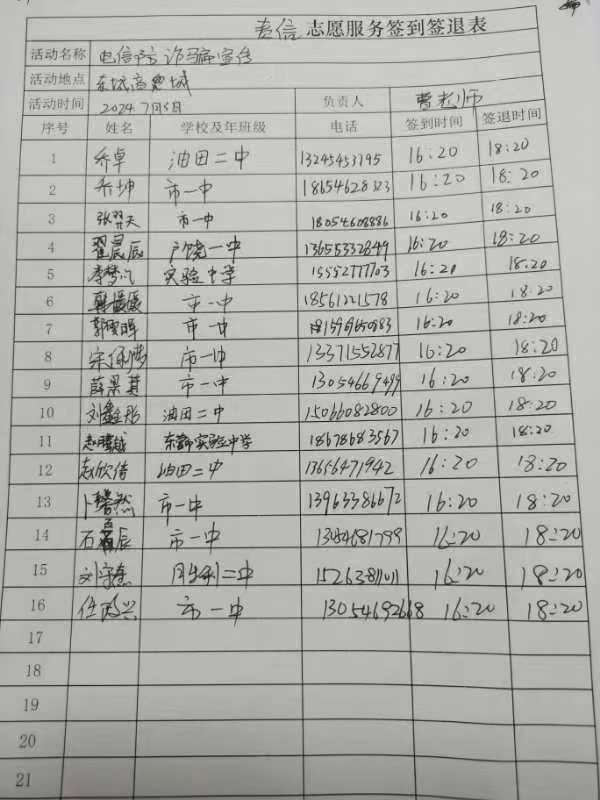 志愿服务签到签退表
活动名称 电信防诈骗宣传
活动地点 东城商贸城
活动时间 2024.7月5日 负责人 曹老师
序号 姓名 学校及年班级 电话 签到时间 签退时间
1 乔卓 油田二中 13245453795 16:20 18:20
2 乔坤 市一中 18654628323 16:20 18:20
3 张羿天 市一中 18054608886 16:20 18:20
4 翟晨辰 广饶一中 13655332849 16:20 18:20
5 实验中学 15552777703 16:20 18:20
6 市一中 18561221578 16:20 18:20
7 市一中 16:20 18:20
8 市一中 13371552877 16:20 18:20
9 市一中 13054669499 16:20 18:20
10 油田二中 15066082800 16:20 18:20
11 实验中学 18678683567 16:20 18:20
12 赵欣倩 油田二中 13656471942 16:20 18:20
13 市一中 13963386672 16:20 18:20
14 市一中 16:20 18:20
15 二中 16:20 18:20
16 市一中 13054692668 16:20 18:20
17
18
19
20
21